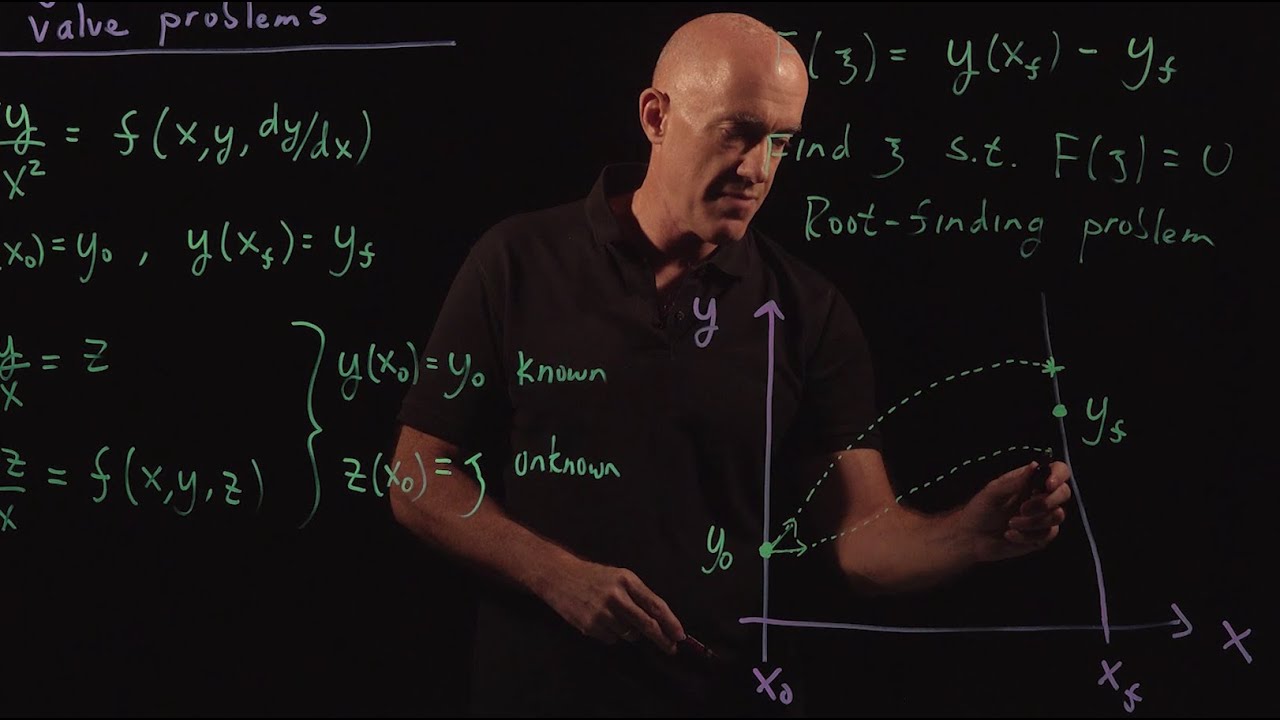 Value problems
y/x² = f(x,y, dy/dx)
(x₀)=y₀ , y(x_f)= y_f
y/x = z
z/x = f(x,y,z)
y(x₀)=y₀ known
z(x₀)= ξ unknown
F(ξ)= y(x_f) - y_f
Find ξ s.t. F(ξ)=0
Root-finding problem
y
y_f
y₀
x
x₀
x_f